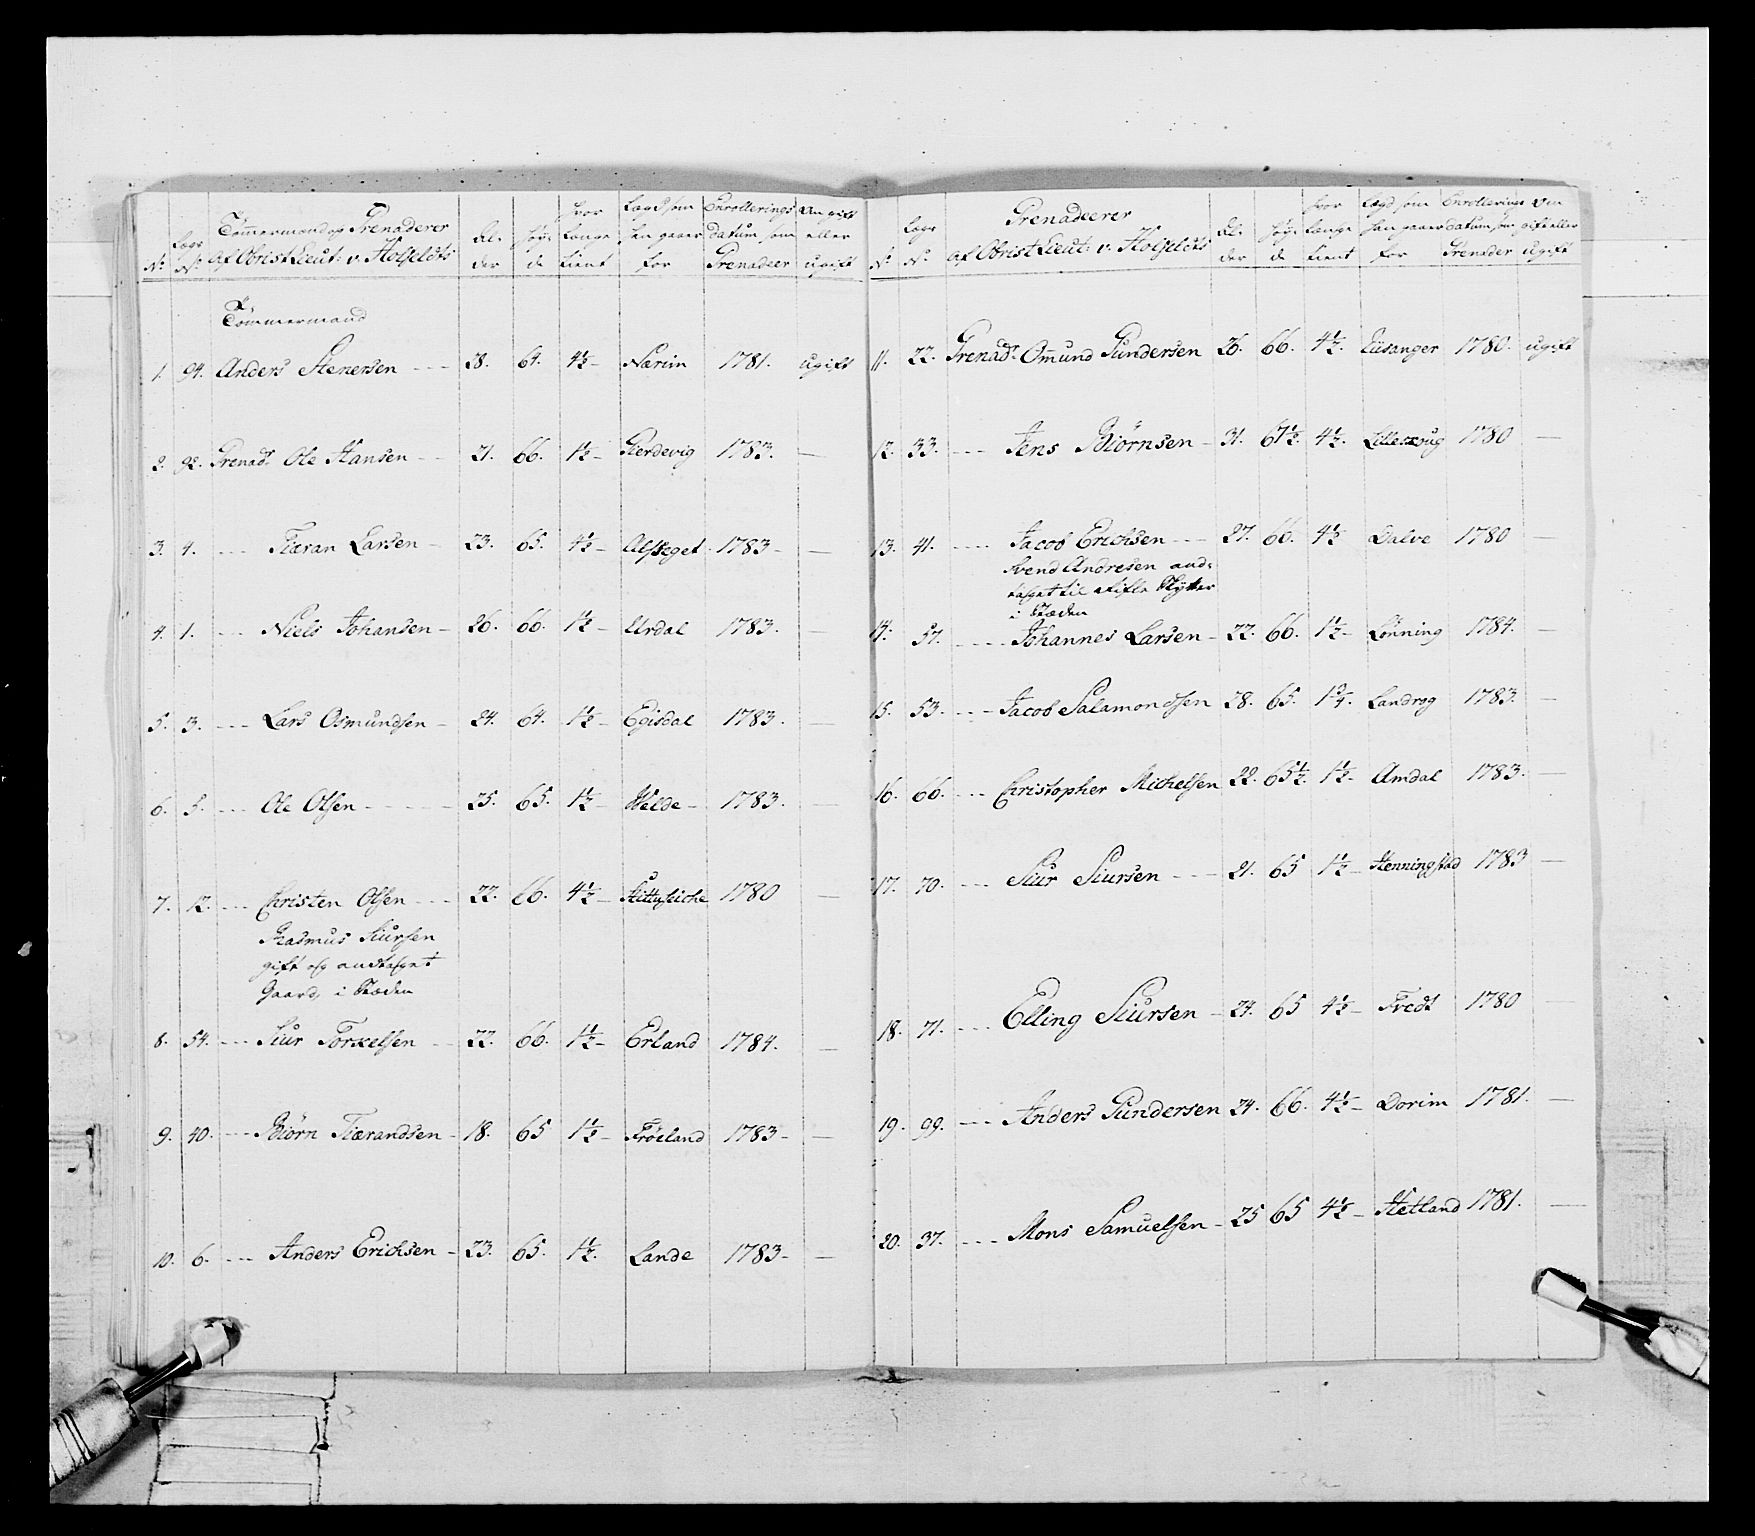 Tømmermand og Grenaderer af Obrist Lieut: v. Holfeldts
N: Lægs N: Al- der Høy- de hvor længe tient Lægd som han gaaer for Enrollerings datum som Grenadeer Om gift eller ugift
Tømmermand
1. 94. Anders Stenersen --- 28. 64. 4½ - Nærim 1781. ugift
2. 92. Grenadr Ole Hansen --- 21. 66. 1½ - Gierdevig 1783. —
3. 4. --- Tiæran Larsen - 23. 65. 4½ - 1783 - —
4. 1. --- Niels Johansen - 26. 66. 1½ - Urdal 1783. —
5. 3. --- Lars Osmundsen - 24. 64. 1½ - Egisdal 1783. —
6. 5. --- Ole Olsen ---- 25. 65. 1½ - Welde - 1783. —
7. 12. --- Christen Olsen --- 22. 66. 4½ - 1780 —
Rasmus Siursen
gift og andtaget
Gaard, i Stæden
8. 54. --- Siur Torkelsen -- 22. 66. 1½ - Erland 1784. —
9. 40. --- Biørn Tiærandsen - 18. 65 1½ - Frøeland 1783 - —
10. 6. --- Anders Erichsen - 23. 65. 1½. Lande 1783 - —
Grenadeerer
af Obrist Lieut: v. Holfeldts
N: Lægs N: Al- der Høy- de hvor længe tient Lægd som han gaaer for Enrollerings datum som Grenader Om gift eller ugift
11. 22. Grenadr Omund Gundersen 26. 66. 4½. Eüsanger 1780. ugift
12. 33. --- Jens Biørnsen - 31. 67½. 4½. 1780 —
13. 41. --- Jacob Erichsen --- 27. 66. 4½ Dalve 1780 —
Svend Andresen and-
taget til Stifts Skytter
i Stæden
14. 57. --- Johannes Larsen - 22. 66. 1½ - Lønning 1784. —
15. 53. --- Jacob Salamondsen 28. 65. 1¾. Landrog 1783. —
16. 66. --- Christopher Michelsen 22. 65½. 1½ - Amdal 1783. —
17. 70. --- Siur Siursen --- 21. 65 1½ - Henningstad 1783 —
18. 71. --- Elling Siursen - 24. 65 4½ - Tvedt 1780
19. 99. --- Anders Gundersen 24. 66. 4½ - Dorim 1781. —
20. 37. --- Mons Samuelsen - 25 65 4½ - Hetland 1781. —